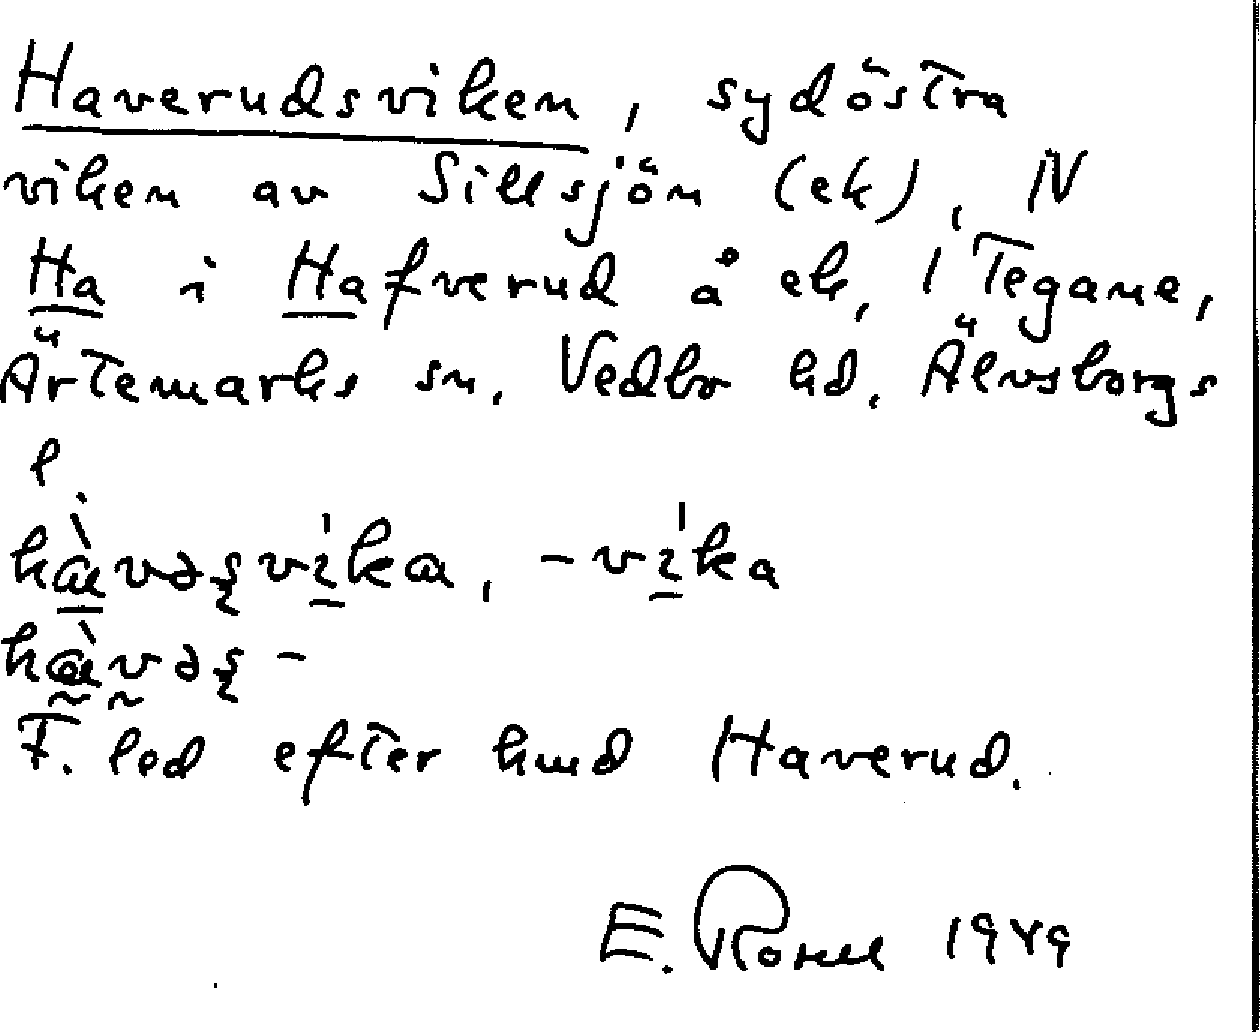 Haverudsviken, sydöstra
viken av Sillsjön (ek), N
Ha i Hafverud å ek, i Tegane,
Ärtemarks sn, Vedbo hd, Älvsborgs
l.
F. led efter hmd Haverud.
E. 1949